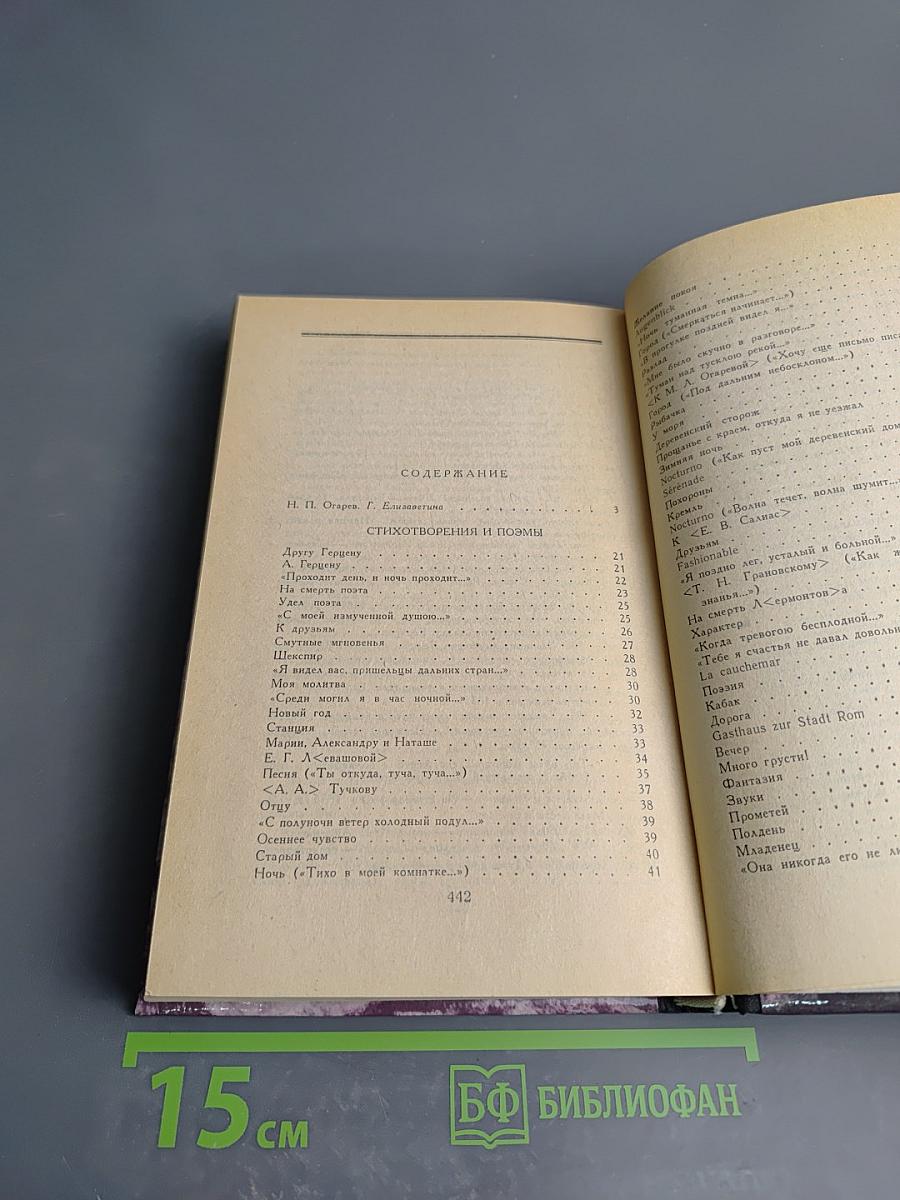 СОДЕРЖАНИЕ
Н. П. Огарев. Г. Елизаветина . . . . . . . . . . 3
СТИХОТВОРЕНИЯ И ПОЭМЫ
Другу Герцену . . . . . . . . . . 21
А. Герцену . . . . . . . . . . 21
«Проходит день, и ночь проходит...» . . . . . . . . . . 22
На смерть поэта . . . . . . . . . . 23
Удел поэта . . . . . . . . . . 25
«С моей измученной душою...» . . . . . . . . . . 25
К друзьям . . . . . . . . . . 26
Смутные мгновенья . . . . . . . . . . 27
Шекспир . . . . . . . . . . 28
«Я видел вас, пришельцы дальних стран...» . . . . . . . . . . 28
Моя молитва . . . . . . . . . . 30
«Среди могил я в час ночной...» . . . . . . . . . . 30
Новый год . . . . . . . . . . 32
Станция . . . . . . . . . . 33
Марии, Александру и Наташе . . . . . . . . . . 33
Е. Г. Л<евашовой> . . . . . . . . . . 34
Песня («Ты откуда, туча, туча...») . . . . . . . . . . 35
<А. А.> Тучкову . . . . . . . . . . 37
Отцу . . . . . . . . . . 38
«С полуночи ветер холодный подул...» . . . . . . . . . . 39
Осеннее чувство . . . . . . . . . . 39
Старый дом . . . . . . . . . . 40
Ночь («Тихо в моей комнатке...») . . . . . . . . . . 41
442
Желание покоя
Augenblick
«Ночь туманная темна...»
Город («Смеркаться начинает...»)
«В прогулке поздней видел я...»
Разлад
«Мне было скучно в разговоре...»
«Туман над тусклою рекой...»
<К М. Л. Огаревой> («Хочу еще письмо
Город («Под дальним небосклоном...»)
Рыбачка
У моря
Деревенский сторож
Прощанье с краем, откуда я не уезжал
Зимняя ночь
Nocturno («Как пуст мой деревенский дом
Sérénade
Похороны
Кремль
Nocturno («Волна течет, волна шумит...»
К <Е. В. Салиас>
Друзьям
Fashionable
«Я поздно лег, усталый и больной...»
<Т. Н. Грановскому> («Как
знанья...»)
На смерть Л<ермонтов>а
Характер
«Когда тревогою бесплодной...»
«Тебе я счастья не давал довольн
La cauchemar
Поэзия
Кабак
Дорога
Gasthaus zur Stadt Rom
Вечер
Много грусти!
Фантазия
Звуки
Прометей
Полдень
Младенец
«Она никогда его не
15 см
БФ БИБЛИОФАН